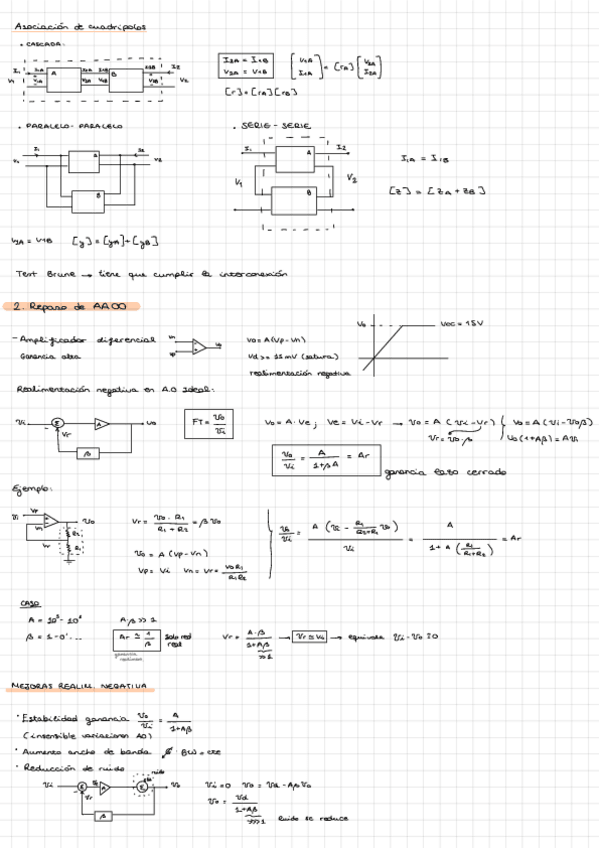 Asociación de cuadripolos
• CASCADA.
I2A = I1B
V2A = V1B
[V1A I1A] = [rA] [V2A I2A]
[r] = [rA][rB]
• PARALELO - PARALELO
• SERIE - SERIE
I1A = I1B
[Z] = [ZA + ZB]
V1A = V1B [y] = [yA] + [yB]
Test Brune → tiene que cumplir la interconexión
2. Repaso de AAOO
- Amplificador diferencial
Ganancia alta
Vo = A(Vp - Vn)
realimentación negativa
Vo
Vcc = 15V
Realimentación negativa en A.O Ideal:
Vi
A
β
Vr
Vo
FT = Vo/Vi
Vo = A · Ve; Ve = Vi - Vr → Vo = A (Vi - Vr)
Vr = Vo · β
Vo = A(Vi - Voβ)
Vo(1+Aβ) = AVi
Vo/Vi = A/(1+βA) = Ar
ganancia lazo cerrado
Ejemplo:
Vi Vp
Vn
Vo
R2
R1
Vr = Vo · R1/(R1 + R2) = β Vo
Vo = A (Vp - Vn)
Vp = Vi Vn = Vr = Vo R1/R1R2
Vo/Vi = A (Vi - R1/(R2+R1) Vo)/Vi = A/(1 + A (R1/(R1+R2))) = Ar
CASO
A·β >> 1
Ar ≃ 1/β
solo red
real
Vr = A·β/(1+Aβ)
>>1
→ Vr ≃ Vi → equivale Vi - Vo ≃ 0
MEJORAS REALIM. NEGATIVA
• Estabilidad ganancia Vo/Vi = A/(1+Aβ)
(insensible variaciones AO)
• Aumento ancho de banda · BW = cte
• Reducción de ruido
ruido
Vi
A
Vr
β
Vo
Vi = 0 Vo = Vd - AβVo
Vo = Vd/(1+Aβ)
>>>1 Ruido se reduce